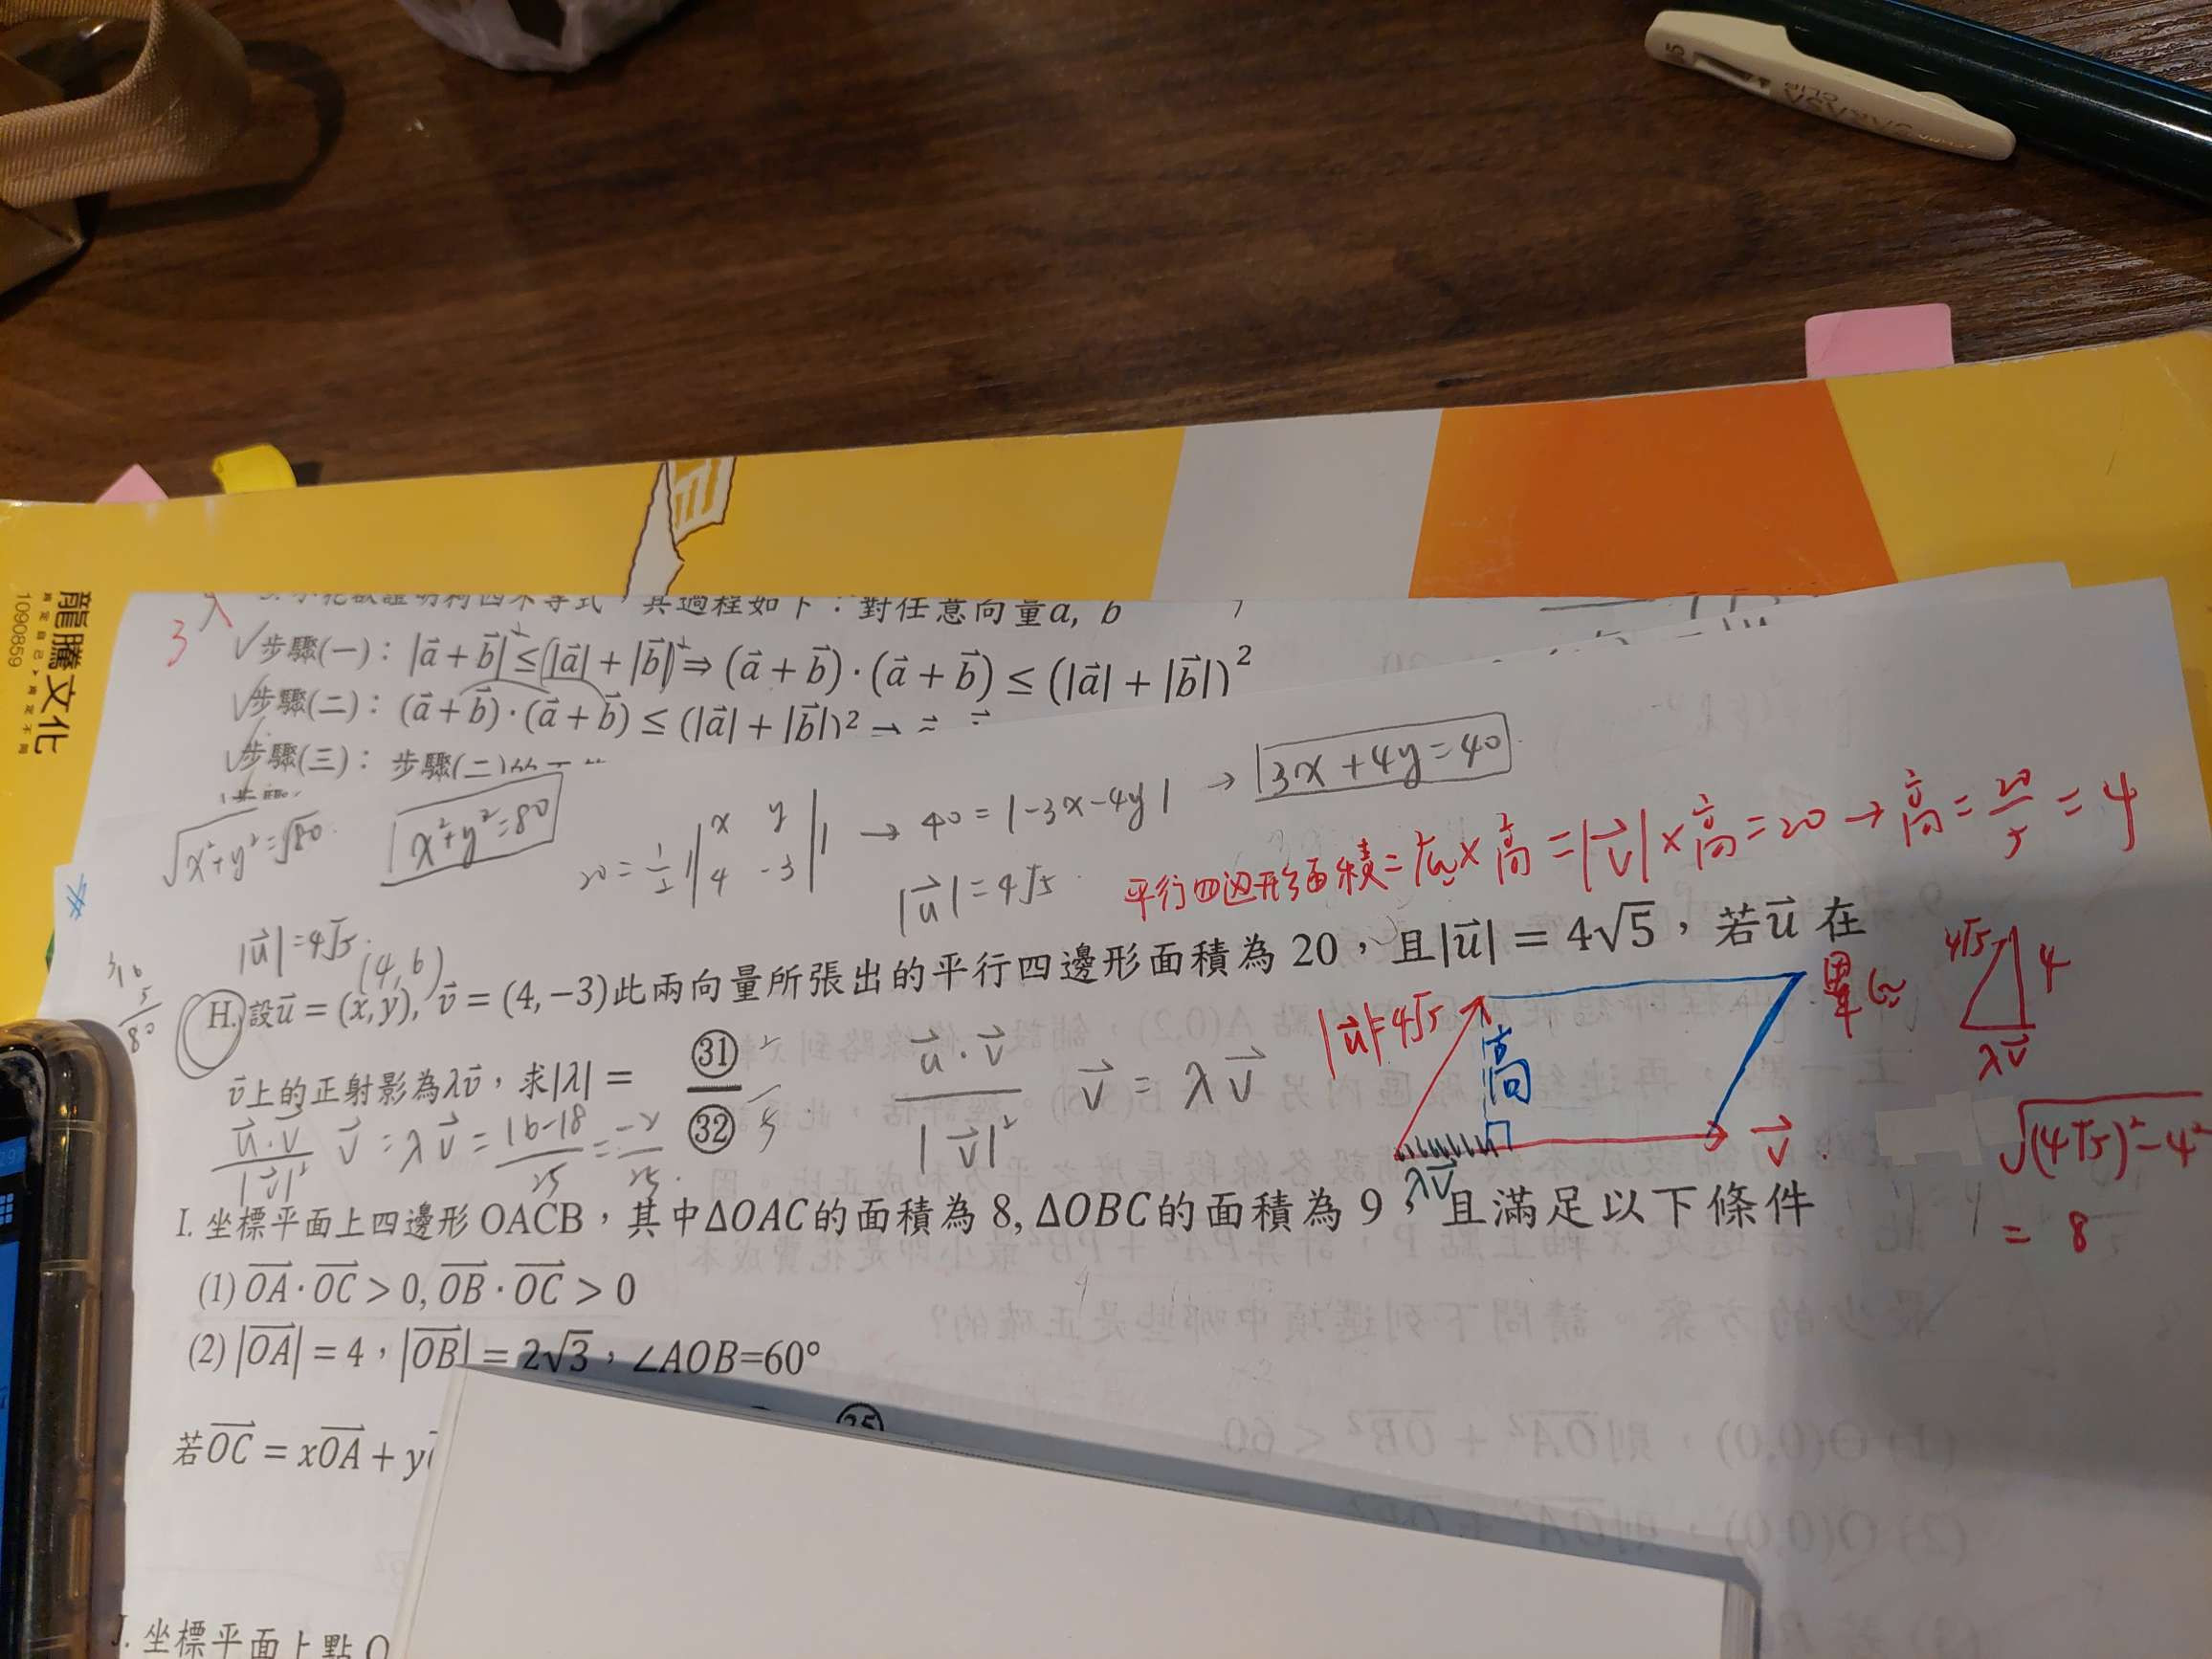 龍騰文化
肯定自己、肯定不同
1090859
SARASA
CLIP
3
證明柯西不等式,其過程如下:對任意向量a, b
步驟(一): |a⃗ + b⃗|² ≤ (|a⃗| + |b⃗|)² ⇒ (a⃗ + b⃗)·(a⃗ + b⃗) ≤ (|a⃗| + |b⃗|)²
步驟(二): (a⃗ + b⃗)·(a⃗ + b⃗) ≤ (|a⃗| + |b⃗|)²
步驟(三): 步驟(二)的
√x²+y² = √80
x²+y²=80
20 = 1/2 | |x y| |4 -3| | → 40 = |-3x-4y| → |3x+4y=40
|u⃗| = 4√5
平行四邊形面積=底×高=|v⃗|×高=20→高=20/5=4
|u⃗| = 4√5
(4,6)
H. 設u⃗ = (x,y), v⃗ = (4,−3)此兩向量所張出的平行四邊形面積為 20,且|u⃗| = 4√5,若u⃗ 在
v⃗上的正射影為λv⃗,求|λ| = ㉛/㉜
2/5
u⃗·v⃗/|v⃗|² v⃗ = λv⃗
u⃗·v⃗/|v⃗|² v⃗ = λv⃗ = 16-18/25 = -2/25
|u⃗|=4√5
高
λv⃗
v⃗
4√5
4
λv⃗
√(4√5)²-4²
= 8
I. 坐標平面上四邊形 OACB,其中ΔOAC的面積為 8, ΔOBC的面積為 9,且滿足以下條件
(1) OA·OC > 0, OB·OC > 0
(2) |OA| = 4,|OB| = 2√3,∠AOB=60°
若OC = xOA + y
J. 坐標平面上點 O